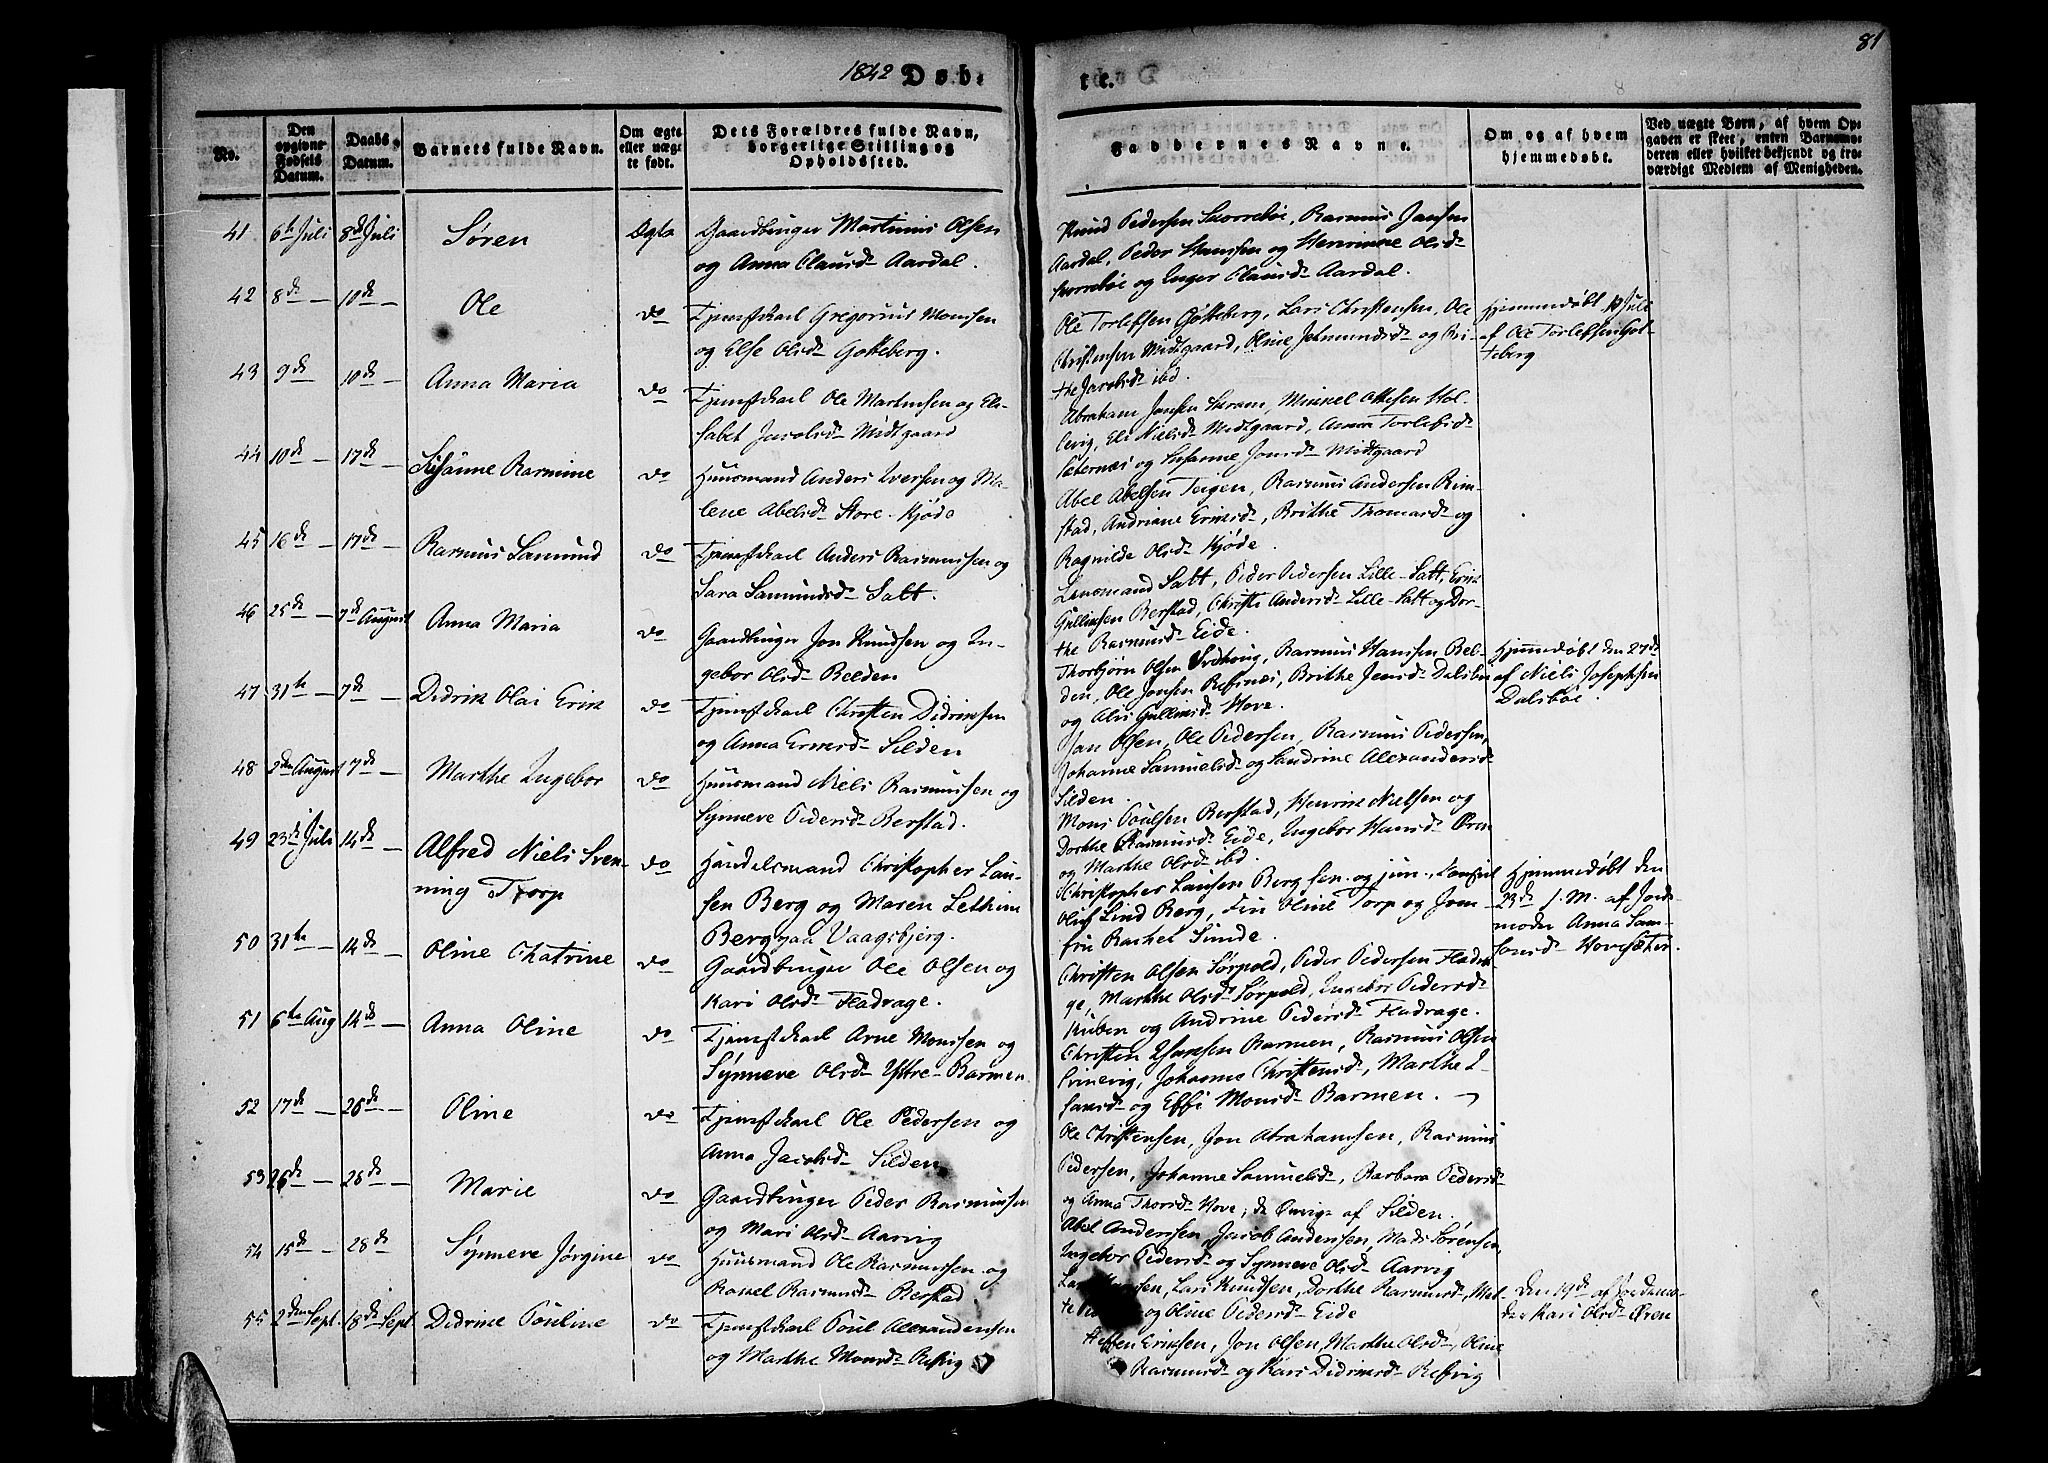 1842 Døb-
te.
81
No.
Den opgivne Fødsels Datum.
Daabs-Datum.
Barnets fulde Navn.
Om ægte eller uægte født.
Dets Forældres fulde Navn, borgerlige Stilling og Opholdssted.
Faddernes Navne.
Om og af hvem hjemmedøbt.
Ved uægte Børn, af hvem Opgaven er skeet, enten Barnemoderen eller hvilket bekjendt og troværdigt Medlem af Menigheden.
41 6te Juli 8de Juli Søren Ægte Gaardbruger Martinus Olsen
og Anna Clausd. Aardal.
Knud Pedersen Skorrebøe, Rasmus Jansen
Aardal, Peder Hanssen og Henrikke Olsd.
Skorrebøe og Inger Clausd. Aardal.
42 8de — 10de — Ole do Tjenestekarl Gregorius Monssen
og Else Olsd. Gotteberg.
Ole Torlefsen Gotteberg, Lars Christensen, Ole
Christensen Midtgaard, Oline Johmundsd. og Bri-
the Jacobsd. ibd.
Hjemmedøbt 10 Juli
af Ole Torlefsen Got-
teberg
43 9de 10de — Anna Maria do Tjenestekarl Ole Martinsen og Eli-
sabet Jacobsd. Midtgaard
Abraham Jansen, Mikkel Ottesen Hol-
levig, Eli Nielsd. Midtgaard, Anna Torlefsd.
og Susanne Jonsd. Midtgaard
44 10de — 17de — Susanne Rasmine do Huusmand Anders Iversen og Ma-
lene Abelsd. Store-Kjøde
Abel Abelsen Teigen, Rasmus Andersen Rim-
stad, Andriane Eriksd., Brithe Thomasd. og
Ragnilde Olsd. Kjøde.
45 16de — 17de — Rasmus Samund do Tjenestekarl Anders Rasmussen og
Sara Samundsd. Salt.
Lensmand Salt, Peder Pedersen Lille-Salt, Erik
Gulliksen Berstad, Christi Andersd. Lille-Salt og Dor-
the Rasmusd. Eide.
46 25de — 7de August Anna Maria do Gaardbruger Jon Knudsen og In-
gebor Olsd. Belden
Thorbjørn Olsen, Rasmus Hanssen Bel-
den, Ole Jonsen Refsnes, Brithe Jensd. Dalsbøe
og Alis Gulliksd. Hove.
Hjemmedøbt den 27de
af Niels Josephsen
Dalsbøe
47 31te — 7de — Didrik Olai Erik do Tjenestekarl Christen Didriksen
og Anna Eriksd. Silden
Jan Olsen, Ole Pedersen, Rasmus Pedersen,
Johanne Samuelsd. og Sandrine Alexandersd.
Silden.
48 2den August 7de — Marthe Ingebor do Huusmand Niels Rasmussen og
Synneve Pedersd. Berstad.
Mons Poulsen Berstad, Henrik Nielsen og
Dorthe Rasmusd. Eide, Ingebor Hansd. Øren
og Marthe Olsd. ibd.
49 23de Juli 14de — Alfred Niels Sven-
ning Torp do Handelsmand Christopher Lau-
sen Berg og Maren Lethine
Berg paa Vaagsbjerg.
Christopher Lausen Berg sen. og jun.,
Oluf Lind Berg, Fru Oline Torp og Jom-
fru Rachel Sunde.
Hjemmedøbt den
23de s. M. af Jord-
moder Anna Sam-
sonsd. Hovesæter.
50 31te — 14de — Oline Chatrine do Gaardbruger Ole Olsen og
Kari Olsd. Fladrage.
Christen Olsen Sørpold, Peder Pedersen Fladra-
ge, Marthe Olsd. Sørpold, Ingebor Pedersd.
Kuben og Andrine Pedersd. Fladrage.
51 6te Aug 14de — Anna Oline do Tjenestekarl Arne Monssen og
Synneve Olsd. Yttre-Barmen.
Christen Hansen Barmen, Rasmus Olsen
Leinevig, Johanne Christensd., Marthe I-
sansd. og Effi Monsd. Barmen.
52 17de — 26de — Oline do Tjenestekarl Ole Pedersen og
Anna Jacobsd. Silden
Ole Christensen, Jon Abrahamsen, Rasmus
Pedersen, Johanne Samuelsd., Barbara Pedersd.
og Anna Thorsd. Hove, de Øvrige af Silden.
53 26de — 26de — Marie do Gaardbruger Peder Rasmussen
og Mari Olsd. Aarvig
Abel Anderssen, Jacob Anderssen, Mads Sørensen,
Ingebor Pedersd. og Synneve Olsd. Aarvig
54 15de — 28de Synneve Jørgine do Huusmand Ole Rasmussen og
Rakel Rasmusd. Berstad.
Lars Knudsen, Dorthe Rasmusd.,
og Oline Pedersd. Eide
Den 19de af Jordemo-
der Kari Olsd. Øren
55 2den Sept. 18de Sept. Didrine Pouline do Tjenestekarl Poul Alexandersen
og Marthe Monsd. Refvig
Steffen Eriksen, Jon Olsen, Marthe Olsd., Oline
Rasmusd. og Kari Didriksd. Refvig